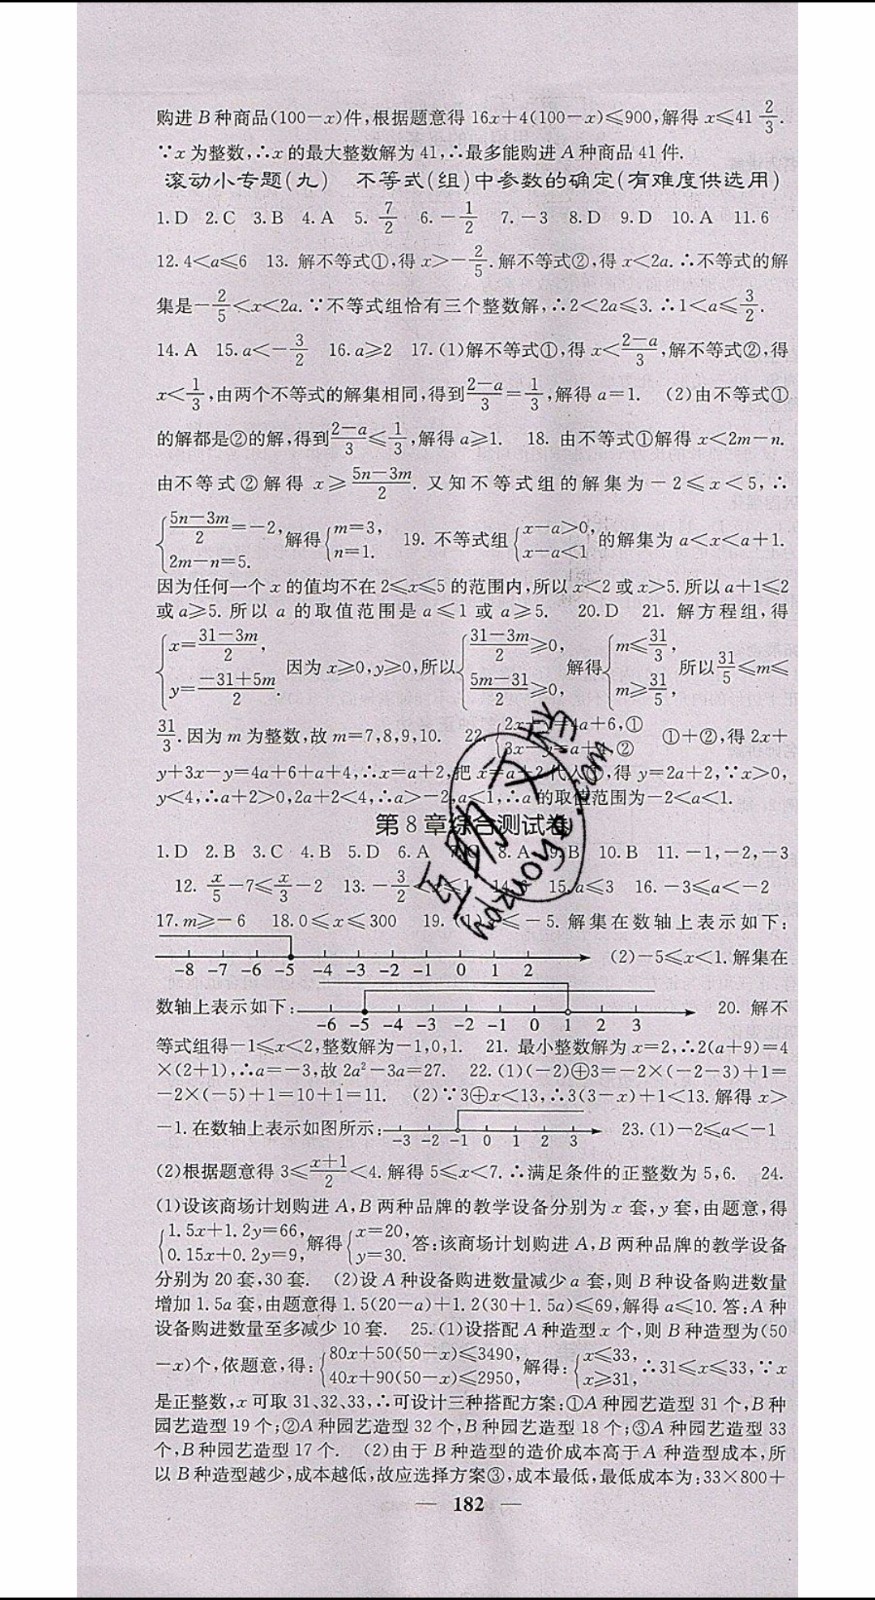 购进B种商品(100－x)件,根据题意得16x＋4(100－x)≤900,解得x≤41 2/3.
∵x为整数,∴x的最大整数解为41,∴最多能购进A种商品41件.
滚动小专题(九) 不等式(组)中参数的确定(有难度供选用)
1.D 2.C 3.B 4.A 5. 7/2 6.－1/2 7.－3 8.D 9.D 10.A 11.6
12.4＜a≤6 13. 解不等式①,得x＞－2/5.解不等式②,得x＜2a.∴不等式的解
集是－2/5＜x＜2a.∵不等式组恰有三个整数解,∴2＜2a≤3.∴1＜a≤3/2.
14.A 15.a＜－3/2 16.a≥2 17.(1)解不等式①,得x＜(2－a)/3,解不等式②,得
x＜1/3,由两个不等式的解集相同,得到(2－a)/3＝1/3,解得a＝1. (2)由不等式①
的解都是②的解,得到(2－a)/3≤1/3,解得a≥1. 18. 由不等式①解得x＜2m－n.
由不等式②解得x≥(5n－3m)/2. 又知不等式组的解集为－2≤x＜5,∴
{(5n－3m)/2＝－2, 2m－n＝5. 解得{m＝3, n＝1. 19. 不等式组{x－a＞0, x－a＜1 的解集为a＜x＜a＋1.
因为任何一个x的值均不在2≤x≤5的范围内,所以x＜2或x＞5.所以a＋1≤2
或a≥5. 所以a的取值范围是a≤1或a≥5. 20.D 21. 解方程组,得
{x＝(31－3m)/2, y＝(－31＋5m)/2. 因为x≥0,y≥0,所以{(31－3m)/2≥0, (5m－31)/2≥0, 解得{m≤31/3, m≥31/5, 所以31/5≤m≤
31/3.因为m为整数,故m＝7,8,9,10. 22. {2x＋y＝4a＋6,① 3x－y＝a＋4,② ①＋②,得2x＋
y＋3x－y＝4a＋6＋a＋4,∴x＝a＋2,把x＝a＋2代入①,得y＝2a＋2,∵x＞0,
y＜4,∴a＋2＞0,2a＋2＜4,∴a＞－2,a＜1,∴a的取值范围为－2＜a＜1.
第8章综合测试卷
1.D 2.B 3.C 4.B 5.D 6.A 8.A 9.B 10.B 11.－1,－2,－3
12. x/5－7≤x/3－2 13.－3/2 ≤1 15.a≤3 16.－3≤a＜－2
17.m≥－6 18.0≤x≤300 19. (1) ≤－5. 解集在数轴上表示如下:
-8 -7 -6 -5 -4 -3 -2 -1 0 1 2 (2)－5≤x＜1.解集在
数轴上表示如下: -6 -5 -4 -3 -2 -1 0 1 2 3 20. 解不
等式组得－1≤x＜2,整数解为－1,0,1. 21. 最小整数解为x＝2,∴2(a＋9)＝4
×(2＋1),∴a＝－3,故2a²－3a＝27. 22.(1)(－2)⊕3＝－2×(－2－3)＋1＝
－2×(－5)＋1＝10＋1＝11. (2)∵3⊕x＜13,∴3(3－x)＋1＜13.解得x＞
－1.在数轴上表示如图所示: -3 -2 -1 0 1 2 3 23.(1)－2≤a＜－1
(2)根据题意得3≤(x＋1)/2＜4.解得5≤x＜7.∴满足条件的正整数为5,6. 24.
(1)设该商场计划购进A,B两种品牌的教学设备分别为x套,y套,由题意,得
{1.5x＋1.2y＝66, 0.15x＋0.2y＝9, 解得{x＝20, y＝30. 答:该商场计划购进A,B两种品牌的教学设备
分别为20套,30套. (2)设A种设备购进数量减少a套,则B种设备购进数量
增加1.5a套,由题意得1.5(20－a)＋1.2(30＋1.5a)≤69,解得a≤10.答:A种
设备购进数量至多减少10套. 25.(1)设搭配A种造型x个,则B种造型为(50
－x)个,依题意,得:{80x＋50(50－x)≤3490, 40x＋90(50－x)≤2950, 解得:{x≤33, x≥31, ∴31≤x≤33,∵x
是正整数,x可取31、32、33,∴可设计三种搭配方案:①A种园艺造型31个,B种
园艺造型19个;②A种园艺造型32个,B种园艺造型18个;③A种园艺造型33
个,B种园艺造型17个. (2)由于B种造型的造价成本高于A种造型成本,所
以B种造型越少,成本越低,故应选择方案③,成本最低,最低成本为:33×800＋
— 182 —
互助文档
hdzuoye.com